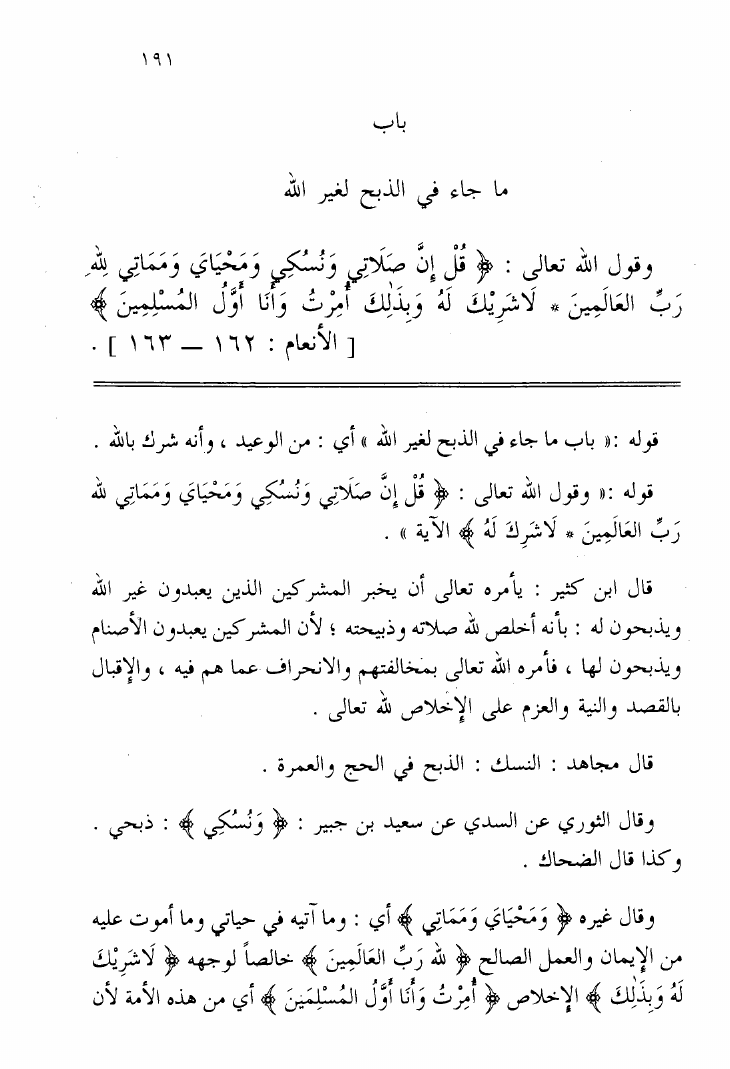 ١٩١
باب
ما جاء في الذبح لغير الله
وقول الله تعالى : ﴿ قُلْ إِنَّ صَلَاتِي وَنُسُكِي وَمَحْيَايَ وَمَمَاتِي لِلّهِ
رَبِّ العَالَمِينَ * لَاشَرِيْكَ لَهُ وَبِذَٰلِكَ أُمِرْتُ وَأَنَا أَوَّلُ المُسْلِمِينَ ﴾
[ الأنعام : ١٦٢ — ١٦٣ ] .
قوله :« باب ما جاء في الذبح لغير الله » أي : من الوعيد ، وأنه شرك بالله .
قوله :« وقول الله تعالى : ﴿ قُلْ إِنَّ صَلَاتِي وَنُسُكِي وَمَحْيَايَ وَمَمَاتِي لله
رَبِّ العَالَمِينَ * لَاشَرِكَ لَهُ ﴾ الآية » .
قال ابن كثير : يأمره تعالى أن يخبر المشركين الذين يعبدون غير الله
ويذبحون له : بأنه أخلص لله صلاته وذبيحته ؛ لأن المشركين يعبدون الأصنام
ويذبحون لها ، فأمره الله تعالى بمخالفتهم والانحراف عما هم فيه ، والإقبال
بالقصد والنية والعزم على الإخلاص لله تعالى .
قال مجاهد : النسك : الذبح في الحج والعمرة .
وقال الثوري عن السدي عن سعيد بن جبير : ﴿ وَنُسُكِي ﴾ : ذبحي .
وكذا قال الضحاك .
وقال غيره ﴿ وَمَحْيَايَ وَمَمَاتِي ﴾ أي : وما آتيه في حياتي وما أموت عليه
من الإيمان والعمل الصالح ﴿ لله رَبِّ العَالَمِينَ ﴾ خالصاً لوجهه ﴿ لَاشَرِيْكَ
لَهُ وَبِذَٰلِكَ ﴾ الإخلاص ﴿ أُمِرْتُ وَأَنَا أَوَّلُ المُسْلِمَينَ ﴾ أي من هذه الأمة لأن